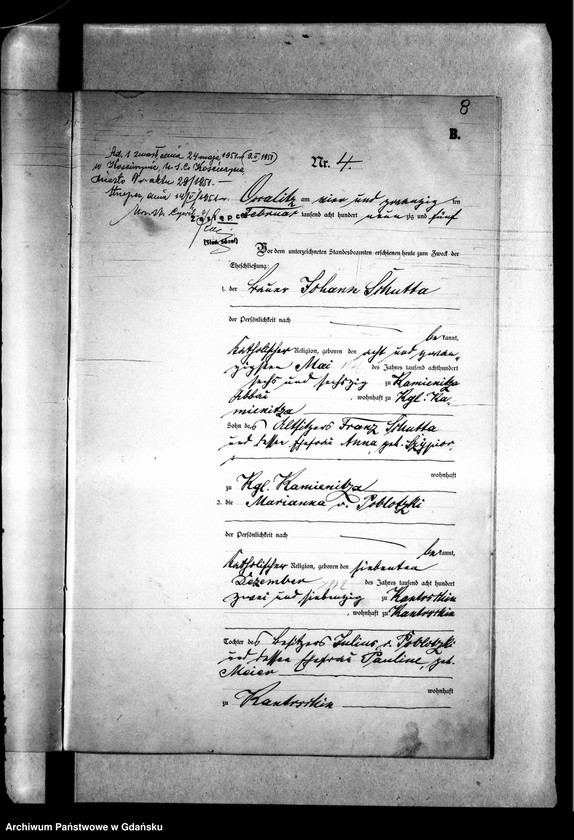 8
B.
Nr. 4.
Ad. 1 zmarł dnia 24 maja 1951 r. (9.II 1951)
w Kościerzynie, U.S.C. Kościerzyna
Miasto Nr. aktu 29/1951. —
am vier und zwanzig ten
Zastępca
Februar tausend acht hundert neun zig und fünf
Vor dem unterzeichneten Standesbeamten erschienen heute zum Zweck der
Eheschließung:
1. der Bauer Johann Schutta
der Persönlichkeit nach
be kannt,
katholischer Religion, geboren den acht und zwan-
zigsten Mai des Jahres tausend achthundert
sechs und sechszig zu Kamienitza
Abbau, wohnhaft zu Kgl. Ka-
mienitza
Sohn des Altsitzers Franz Schutta
und dessen Ehefrau Anna, geb.
wohnhaft
zu Kgl. Kamienitza
2. die Marianna v. Poblotzki
der Persönlichkeit nach
be kannt,
katholischer Religion, geboren den siebenten
Dezember des Jahres tausend acht hundert
zwei und siebenzig zu
, wohnhaft zu
Tochter des Besitzers Julius v. Poblotzki
und dessen Ehefrau Pauline, geb.
Meier
wohnhaft
zu
Archiwum Państwowe w Gdańsku